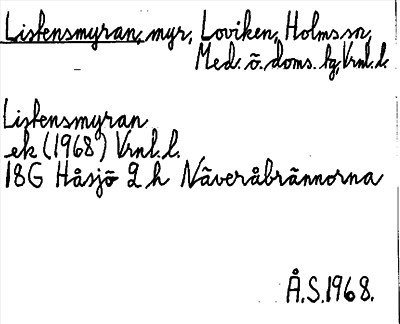 Listensmyran, myr, Loviken, Holms sn,
Med. ö. doms. tg, Vrnl. l.
Listensmyran
ek (1968) Vrnl. l.
18G Håsjö 2 h Näveråbrännorna
Å.S. 1968.